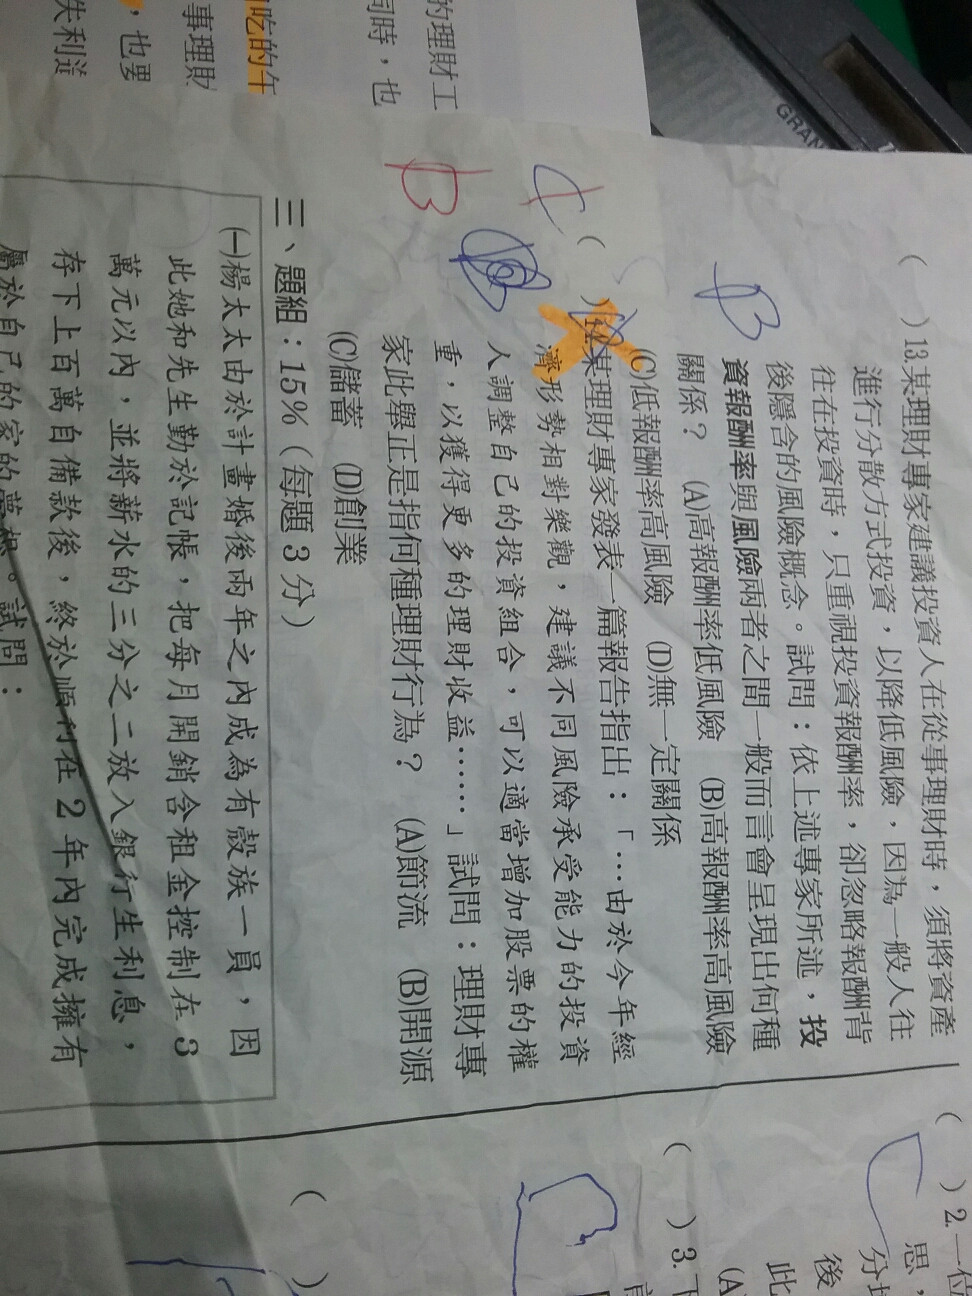 的理財工
同時，也
吃的午
事理財
，也要
失利造
GRAN
( )13.某理財專家建議投資人在從事理財時，須將資產
進行分散方式投資，以降低風險，因為一般人往
往在投資時，只重視投資報酬率，卻忽略報酬背
後隱含的風險概念。試問：依上述專家所述，投
資報酬率與風險兩者之間一般而言會呈現出何種
關係？ (A)高報酬率低風險 (B)高報酬率高風險
(C)低報酬率高風險 (D)無一定關係
B
( )14.某理財專家發表一篇報告指出：「…由於今年經
濟形勢相對樂觀，建議不同風險承受能力的投資
人調整自己的投資組合，可以適當增加股票的權
重，以獲得更多的理財收益……」試問：理財專
家此舉正是指何種理財行為？ (A)節流 (B)開源
(C)儲蓄 (D)創業
B
三、題組：15%（每題 3 分）
(一)楊太太由於計畫婚後兩年之內成為有殼族一員，因
此她和先生勤於記帳，把每月開銷含租金控制在 3
萬元以內，並將薪水的三分之二放入銀行生利息，
存下上百萬自備款後，終於順利在 2 年內完成擁有
屬於自己的家的夢想。試問：
( )2.一位
思，
分
後
此
(A)
C
( )3.下
C
( )